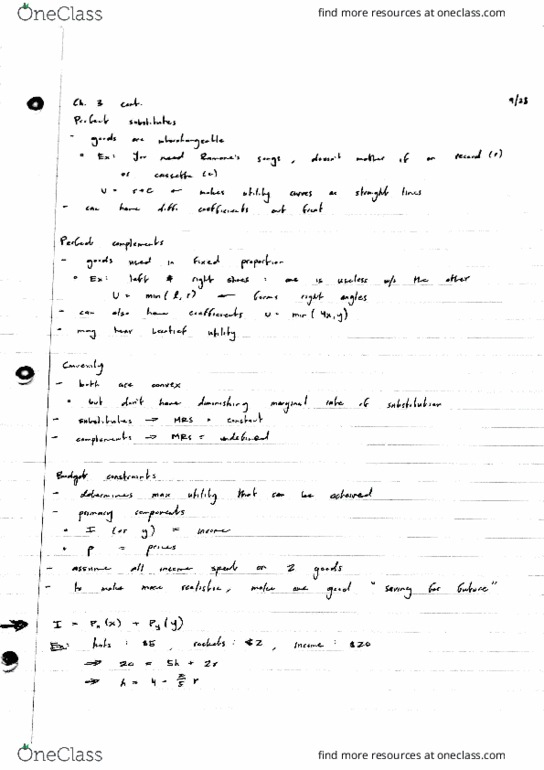 OneClass
find more resources at oneclass.com
Ch. 3 cont.
9/28
Perfect substitutes
- goods are interchangeable
• Ex: You need Ramone's songs, doesn't matter if on record (r)
or cassette (c)
U = r+c ← makes utility curves as straight lines
- can have diff. coefficients out front
Perfect complements
- goods used in fixed proportion
• Ex: left & right shoes: one is useless w/o the other
U = min(l, r) ← forms right angles
- can also have coefficients U = min(4x, y)
- may hear Leontief utility
Convexity
- both are convex
• but don't have diminishing marginal rate of substitution
- substitutes → MRS = constant
- complements → MRS = undefined
Budget constraints
- determines max utility that can be achieved
- primary components
• I (or y) = income
• p = prices
- assume all income spent on 2 goods
- to make more realistic, make one good "saving for future"
→ I = Px(x) + Py(y)
Ex: hats: $5, rackets: $2, income: $20
⇒ 20 = 5h + 2r
⇒ h = 4 - 2/5 r
OneClass
find more resources at oneclass.com